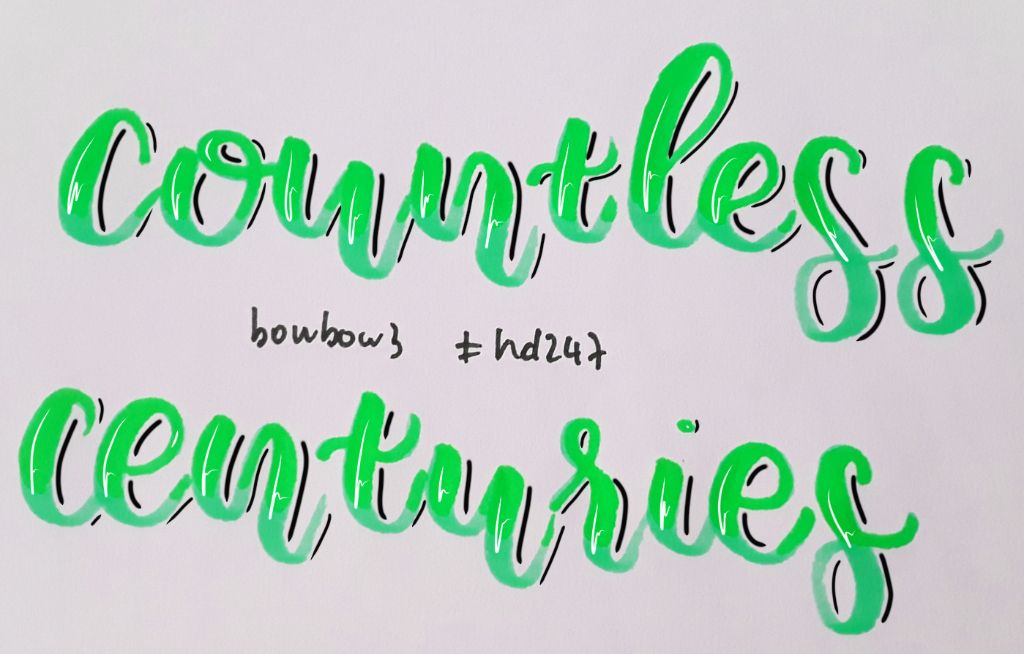 countless
bowbow3 #hd247
centuries